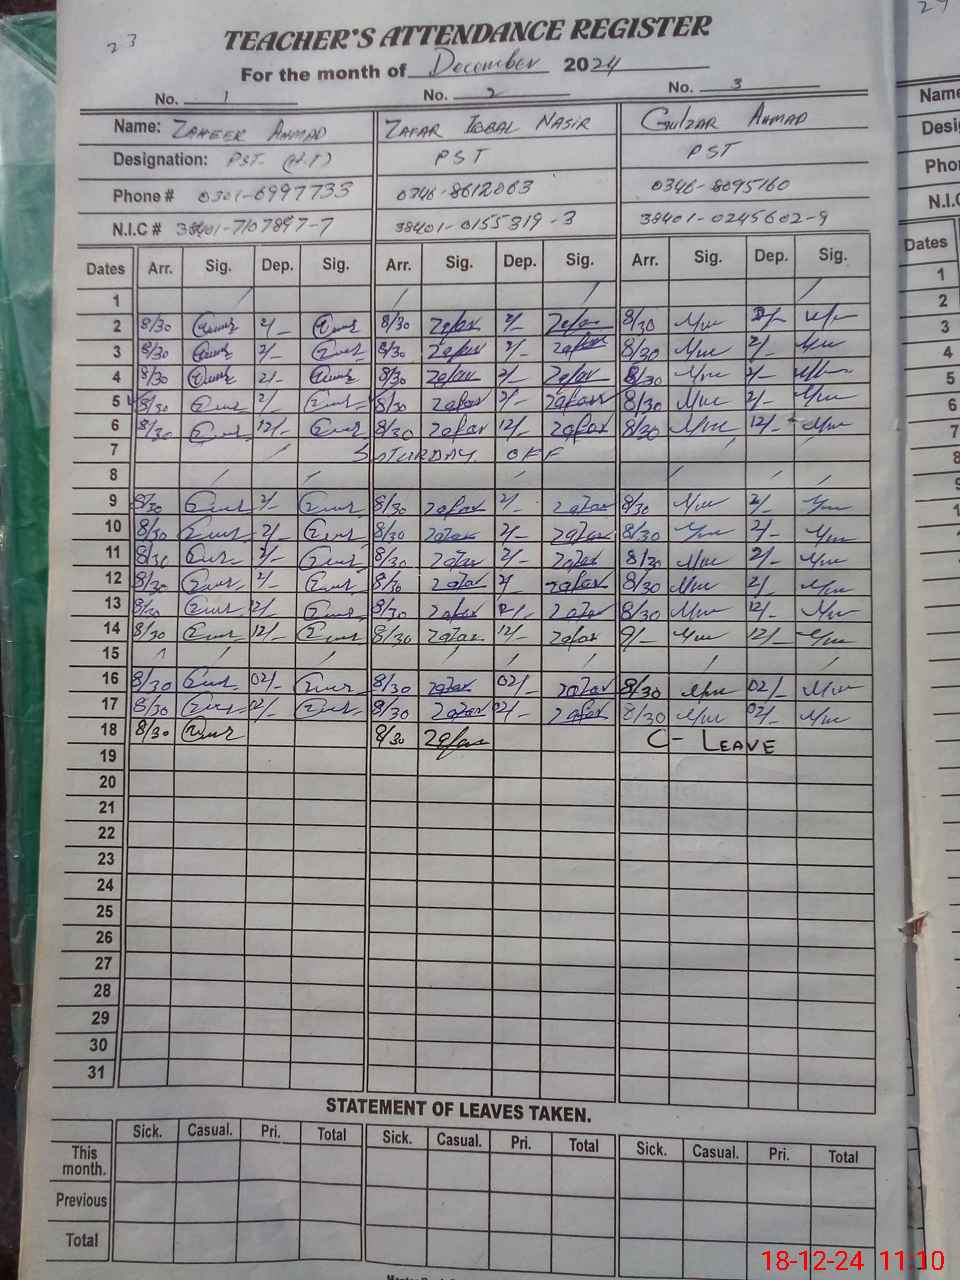 23
TEACHER'S ATTENDANCE REGISTER
For the month of December 2024
No. 1 No. 2 No. 3
Name: ZAHEER AHMAD ZAFAR IQBAL NASIR GULZAR AHMAD
Designation: PST (H.T) PST PST
Phone # 0301-6997733 0346-8612063 0346-8095160
N.I.C # 38401-7107897-7 38401-0155319-3 38401-0245602-9
Dates Arr. Sig. Dep. Sig. Arr. Sig. Dep. Sig. Arr. Sig. Dep. Sig.
1
2 8/30 2/- 8/30 Zafar 2/- Zafar 8/30 2/-
3 8/30 2/- 8/30 Zafar 2/- Zafar 8/30 2/-
4 8/30 2/- 8/30 Zafar 2/- Zafar 8/30 2/-
5 8/30 2/- 8/30 Zafar 2/- Zafar 8/30 2/-
6 8/30 12/- 8/30 Zafar 12/- Zafar 8/30 12/-
7 SATURDAY OFF
8
9 8/30 2/- 8/30 Zafar 2/- Zafar 8/30 2/-
10 8/30 2/- 8/30 Zafar 2/- Zafar 8/30 2/-
11 8/30 2/- 8/30 Zafar 2/- Zafar 8/30 2/-
12 8/30 2/- 8/30 Zafar 2/ Zafar 8/30 2/-
13 8/30 12/- 8/30 Zafar 12/- Zafar 8/30 12/-
14 8/30 12/- 8/30 Zafar 12/- Zafar 9/- 12/-
15
16 8/30 02/- 8/30 Zafar 02/- Zafar 8/30 02/-
17 8/30 02/- 8/30 Zafar 02/- Zafar 8/30 02/-
18 8/30 8/30 Zafar C- LEAVE
19
20
21
22
23
24
25
26
27
28
29
30
31
STATEMENT OF LEAVES TAKEN.
Sick. Casual. Pri. Total Sick. Casual. Pri. Total Sick. Casual. Pri. Total
This
month.
Previous
Total
Name
Desig
Phon
N.I.C
Dates
1
2
3
4
5
6
7
8
18-12-24 11:10